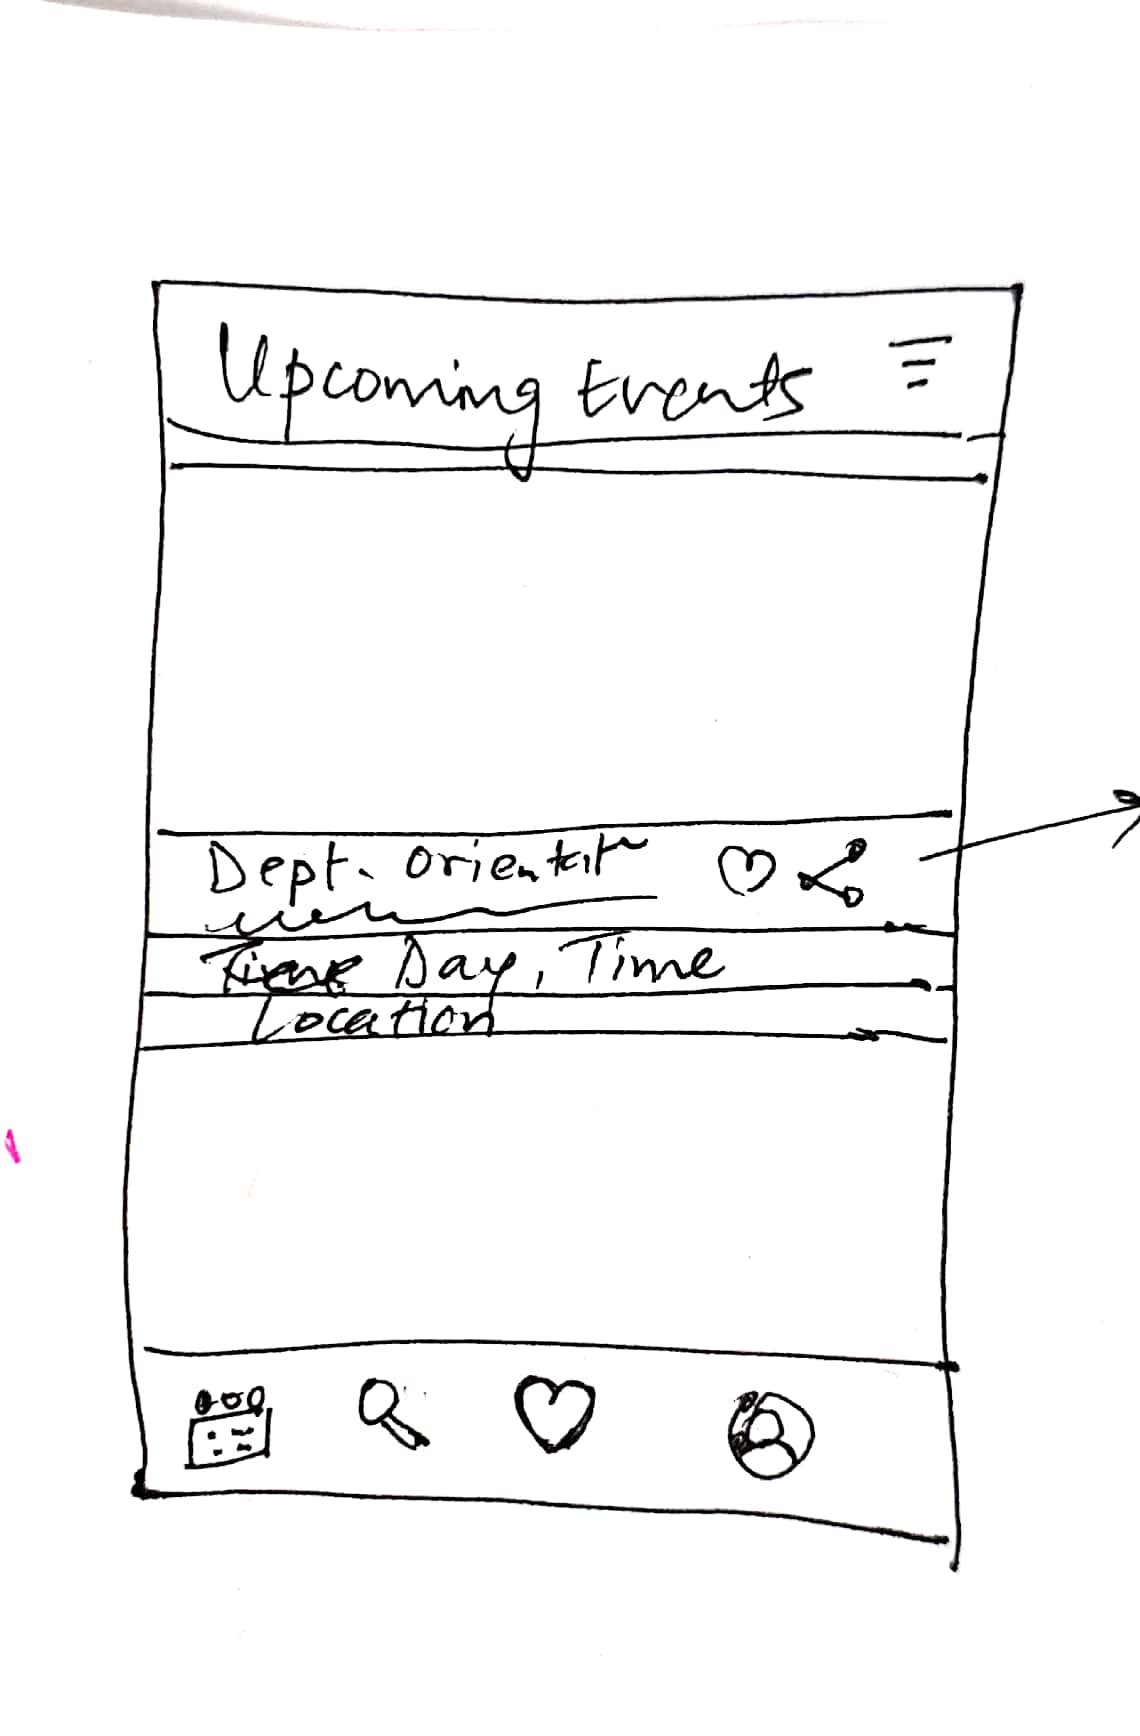 Upcoming Events
Dept. Orientat
Day, Time
Location